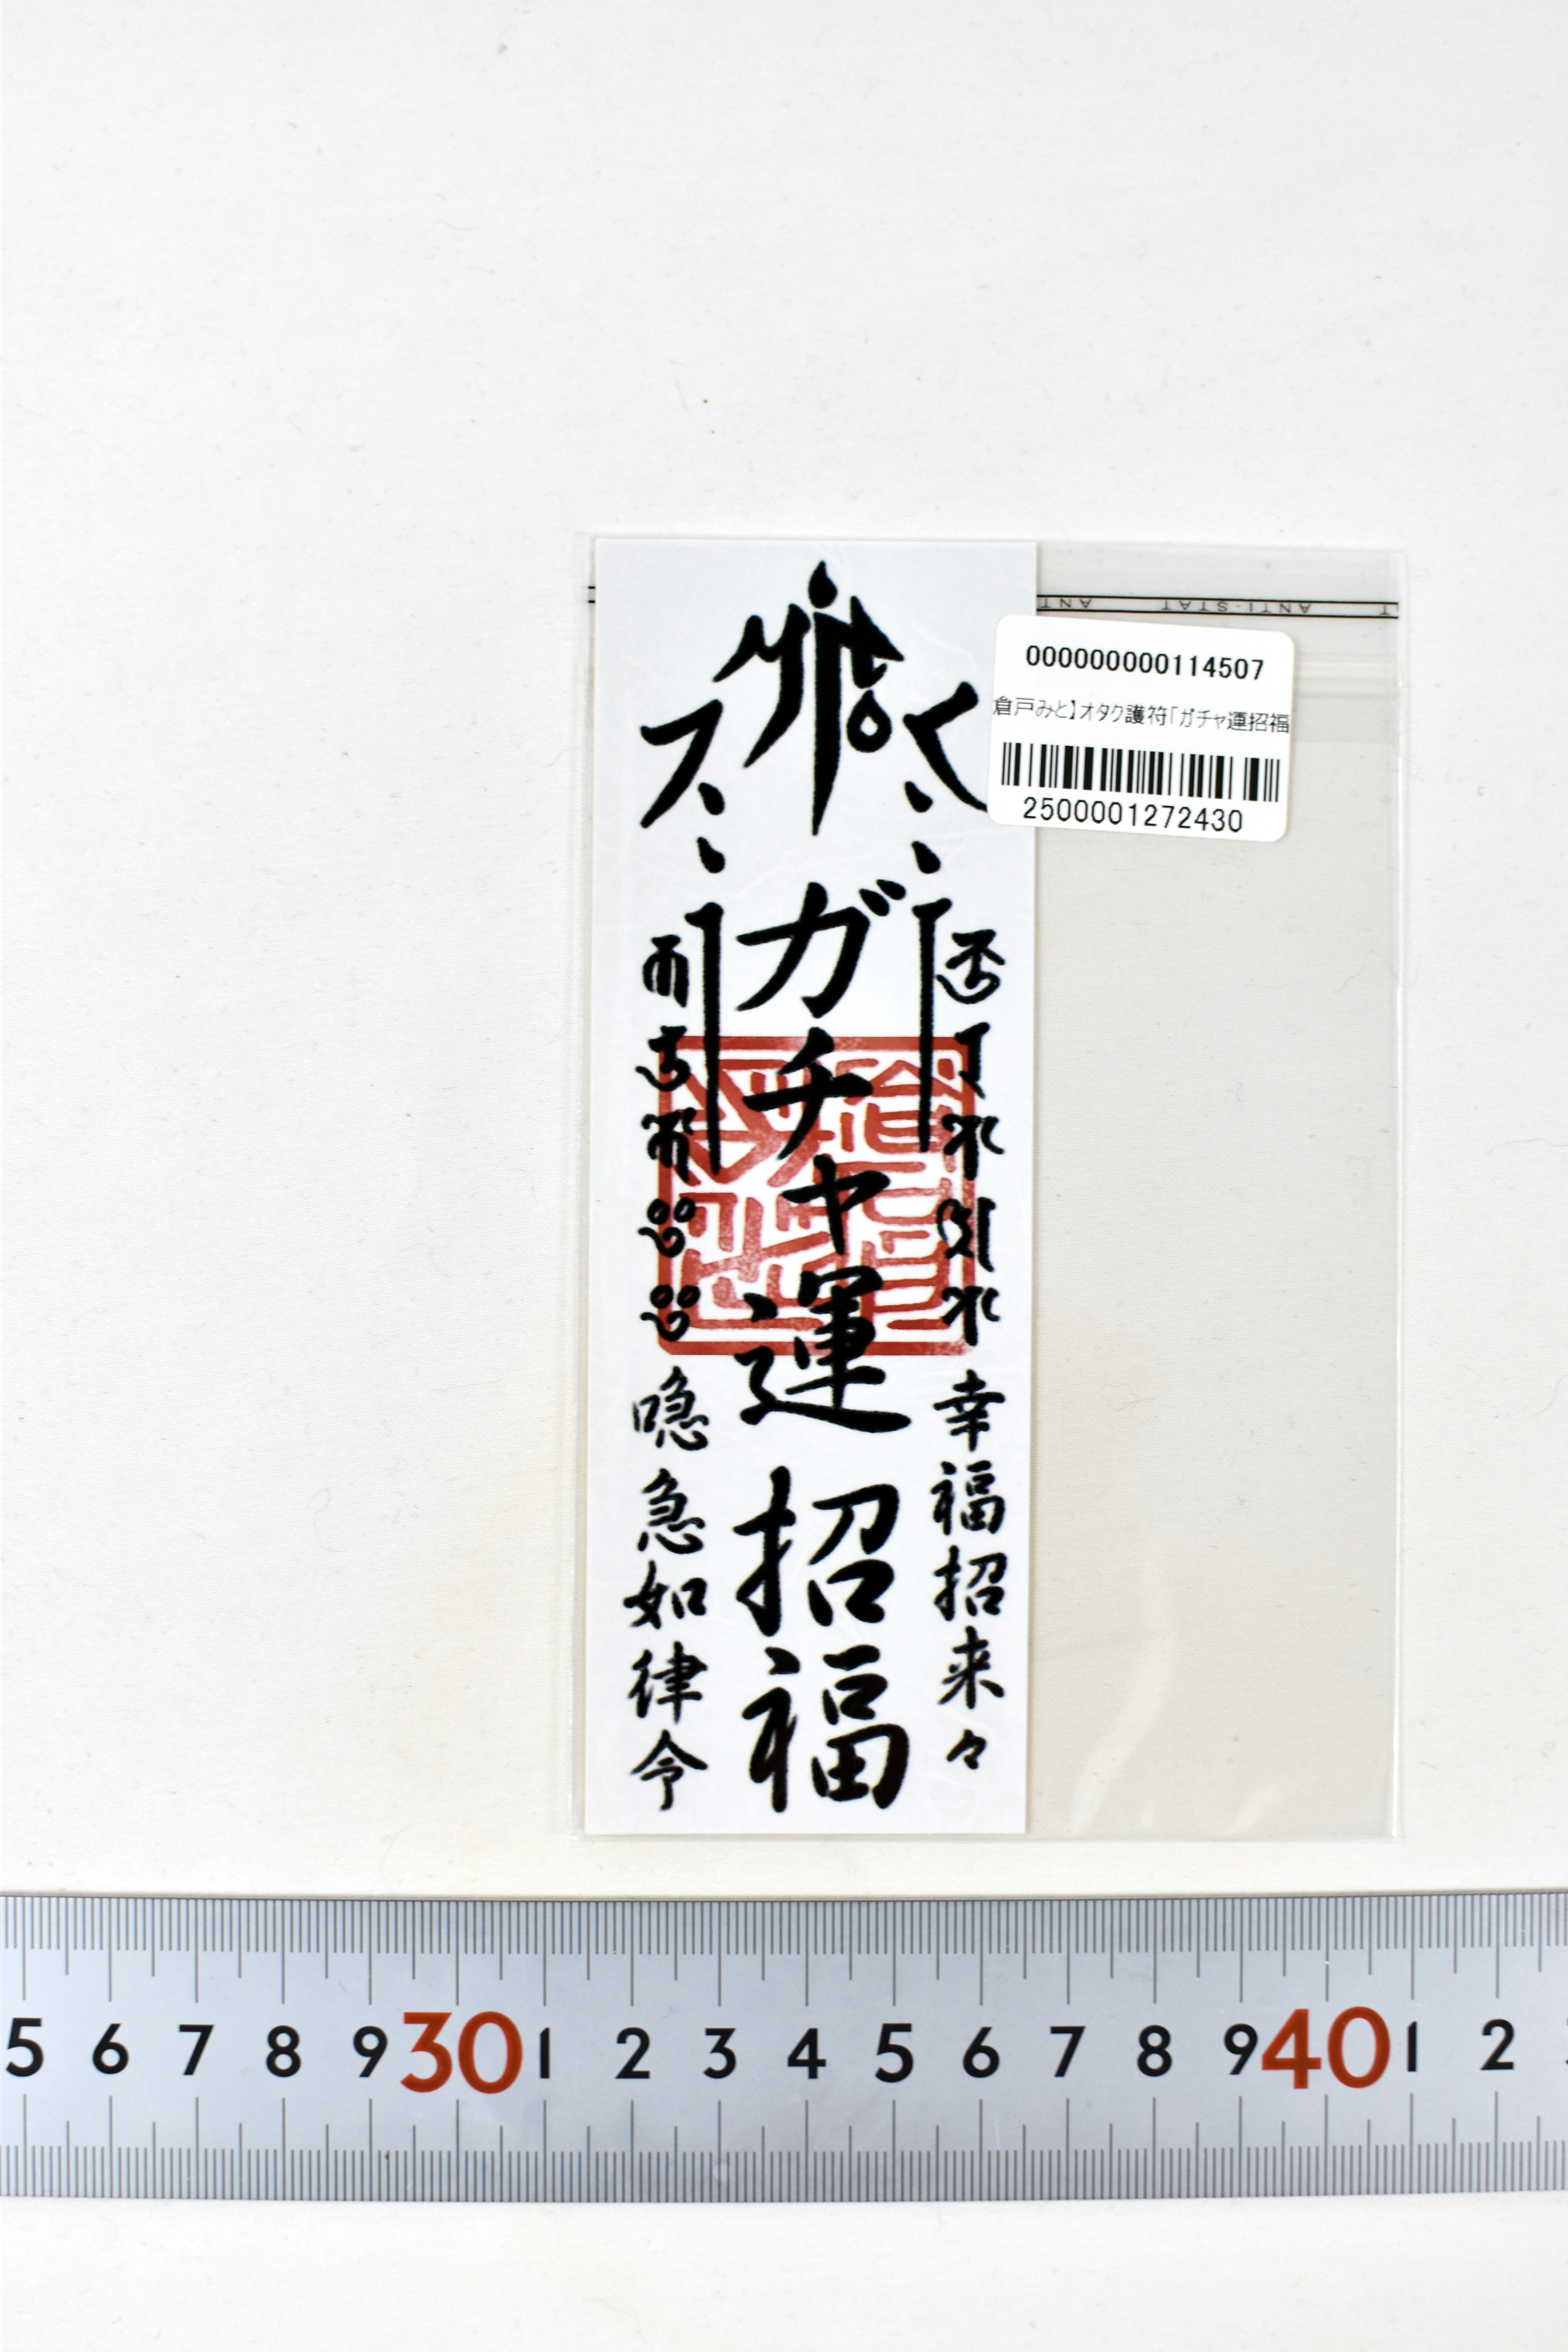 ANTI-STAT ANTI
000000000114507
倉戸みと】オタク護符「ガチャ運招福
2500001272430
幸福招来々
ガチャ運招福
喼急如律令
5 6 7 8 9 30 1 2 3 4 5 6 7 8 9 40 1 2